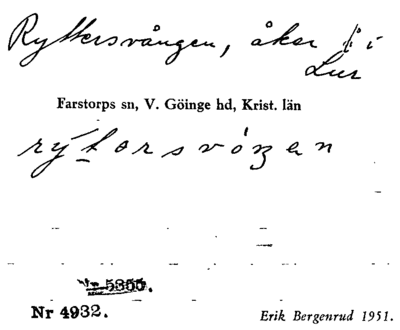 Ryttersvången, åker i
Lur
Farstorps sn, V. Göinge hd, Krist. län
rýtorsvóŋen
Nr 5355.
Nr 4932.
Erik Bergenrud 1951.